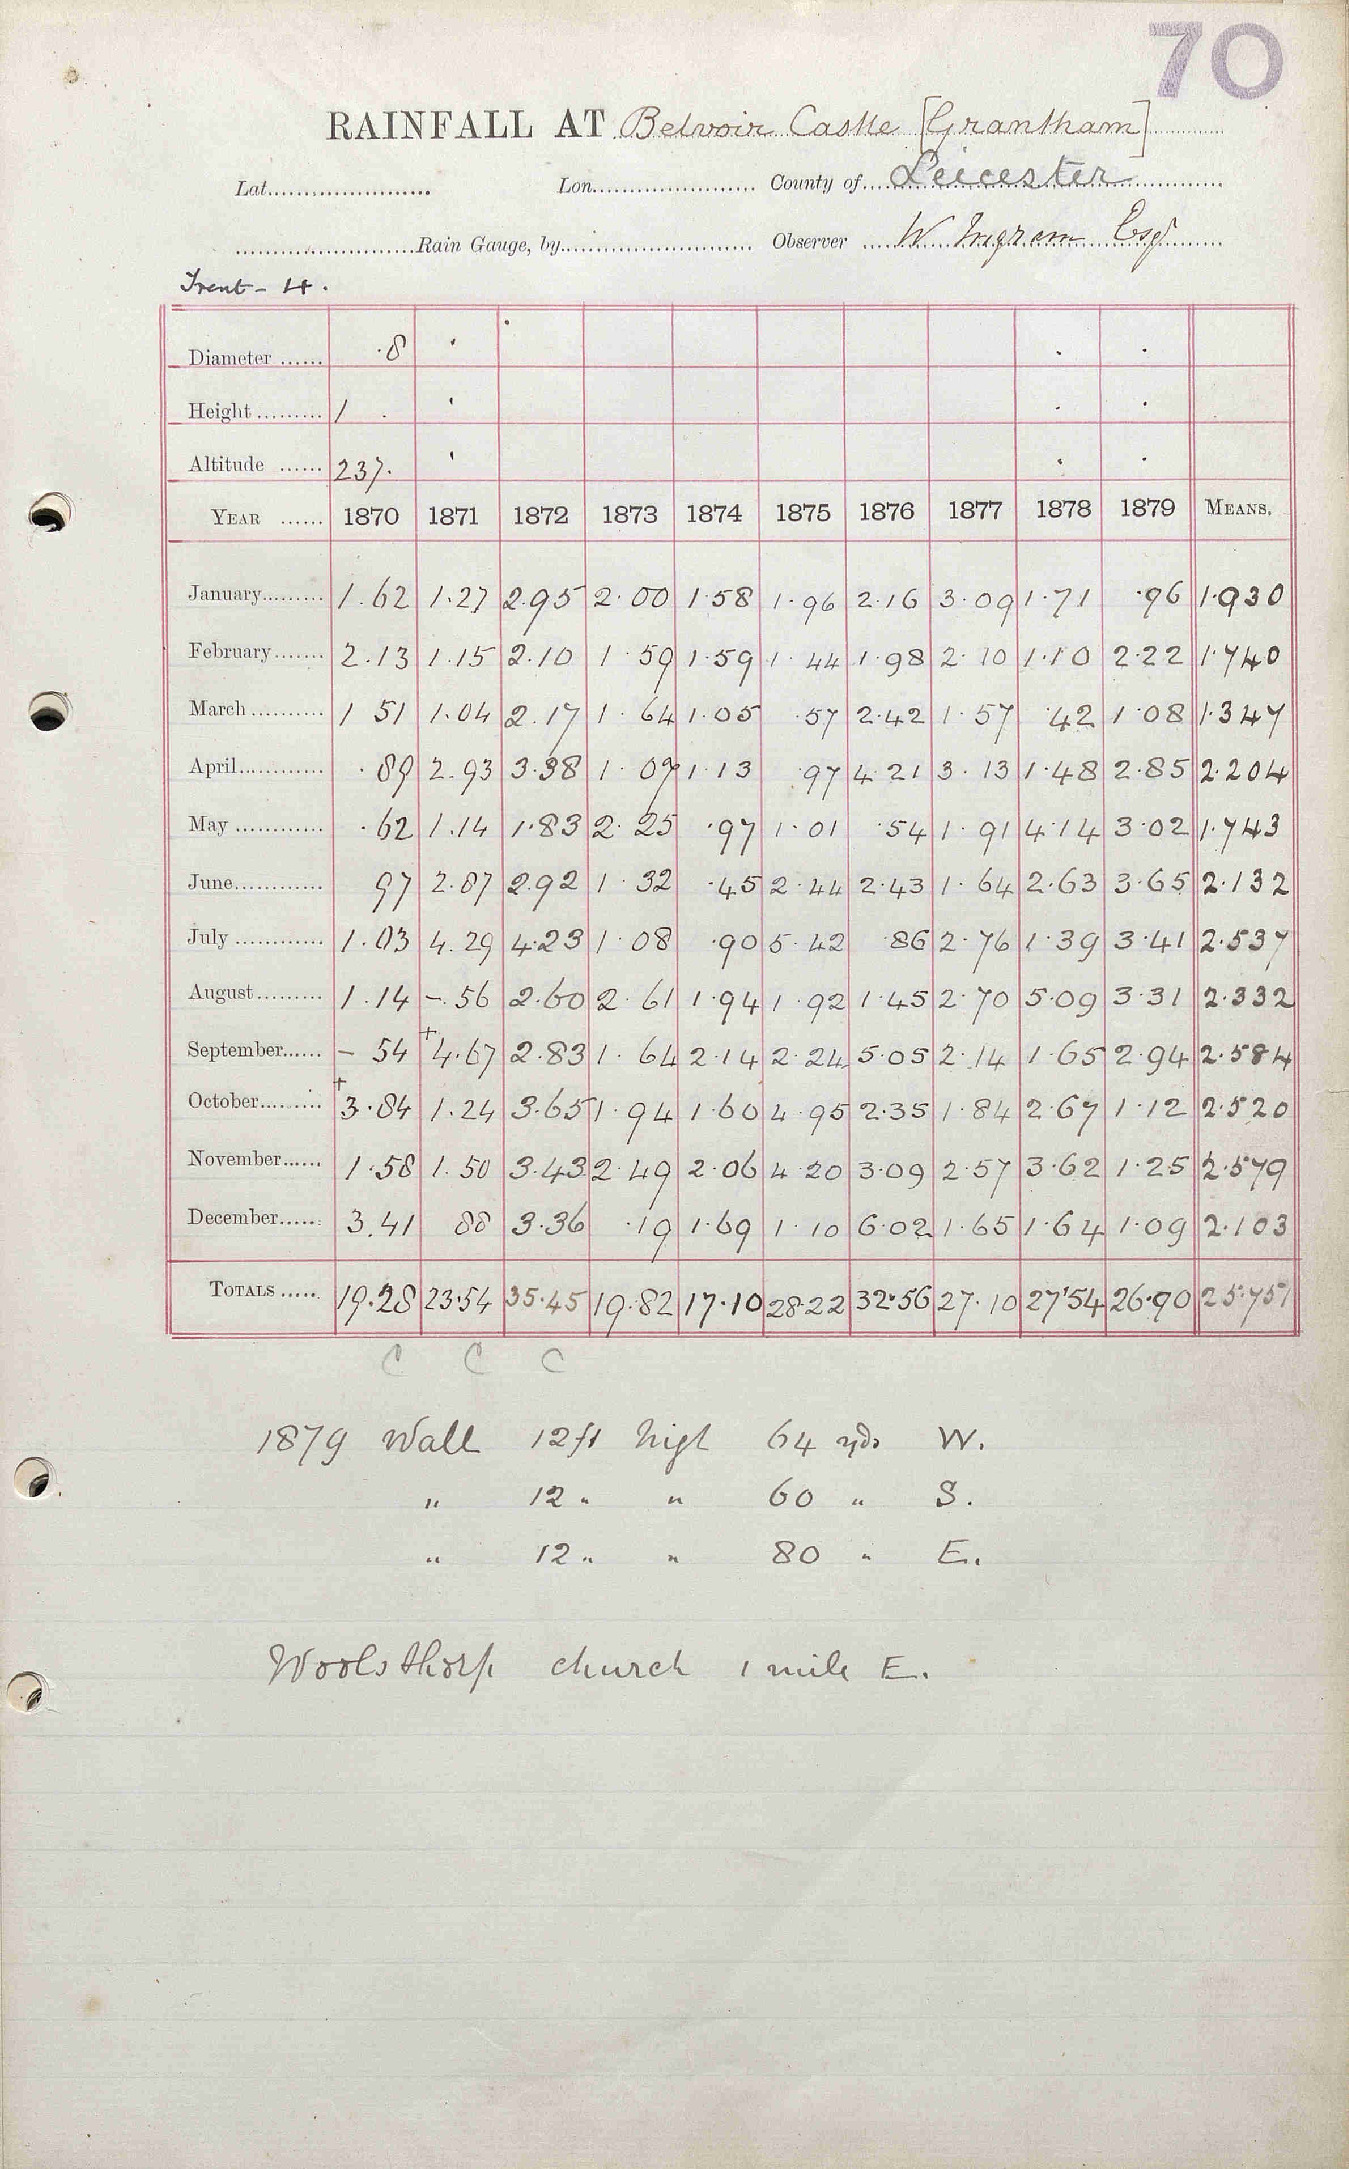 70
RAINFALL AT Belvoir Castle [Grantham]
Lat. Lon. County of Leicester
Rain Gauge, by Observer W Ingram Esq
Trent - 4.
Diameter ...... 8
Height ......... 1
Altitude ...... 237.
YEAR ...... 1870 1871 1872 1873 1874 1875 1876 1877 1878 1879 MEANS.
January......... 1.62 1.27 2.95 2.00 1.58 1.96 2.16 3.09 1.71 .96 1.930
February....... 2.13 1.15 2.10 1.59 1.59 1.44 1.98 2.10 1.10 2.22 1.740
March.......... 1 51 1.04 2.17 1.64 1.05 .57 2.42 1.57 .42 1.08 1.347
April............ .89 2.93 3.38 1.09 1.13 .97 4.21 3.13 1.48 2.85 2.204
May ............ .62 1.14 1.83 2.25 .97 1.01 .54 1.91 4.14 3.02 1.743
June............ 97 2.87 2.92 1.32 .45 2.44 2.43 1.64 2.63 3.65 2.132
July ............ 1.03 4.29 4.23 1.08 .90 5.42 .86 2.76 1.39 3.41 2.537
August......... 1.14 -.56 2.60 2.61 1.94 1.92 1.45 2.70 5.09 3.31 2.332
September...... - 54 +4.67 2.83 1.64 2.14 2.24 5.05 2.14 1.65 2.94 2.584
October......... +3.84 1.24 3.65 1.94 1.60 4.95 2.35 1.84 2.67 1.12 2.520
November...... 1.58 1.50 3.43 2.49 2.06 4.20 3.09 2.57 3.62 1.25 2.579
December...... 3.41 88 3.36 .19 1.69 1.10 6.02 1.65 1.64 1.09 2.103
TOTALS ..... 19.28 23.54 35.45 19.82 17.10 28.22 32.56 27.10 27.54 26.90 25.751
C C C
1879 Wall 12ft high 64 yds W.
" 12 " " 60 " S.
" 12 " " 80 " E.
Woolsthorp church 1 mile E.